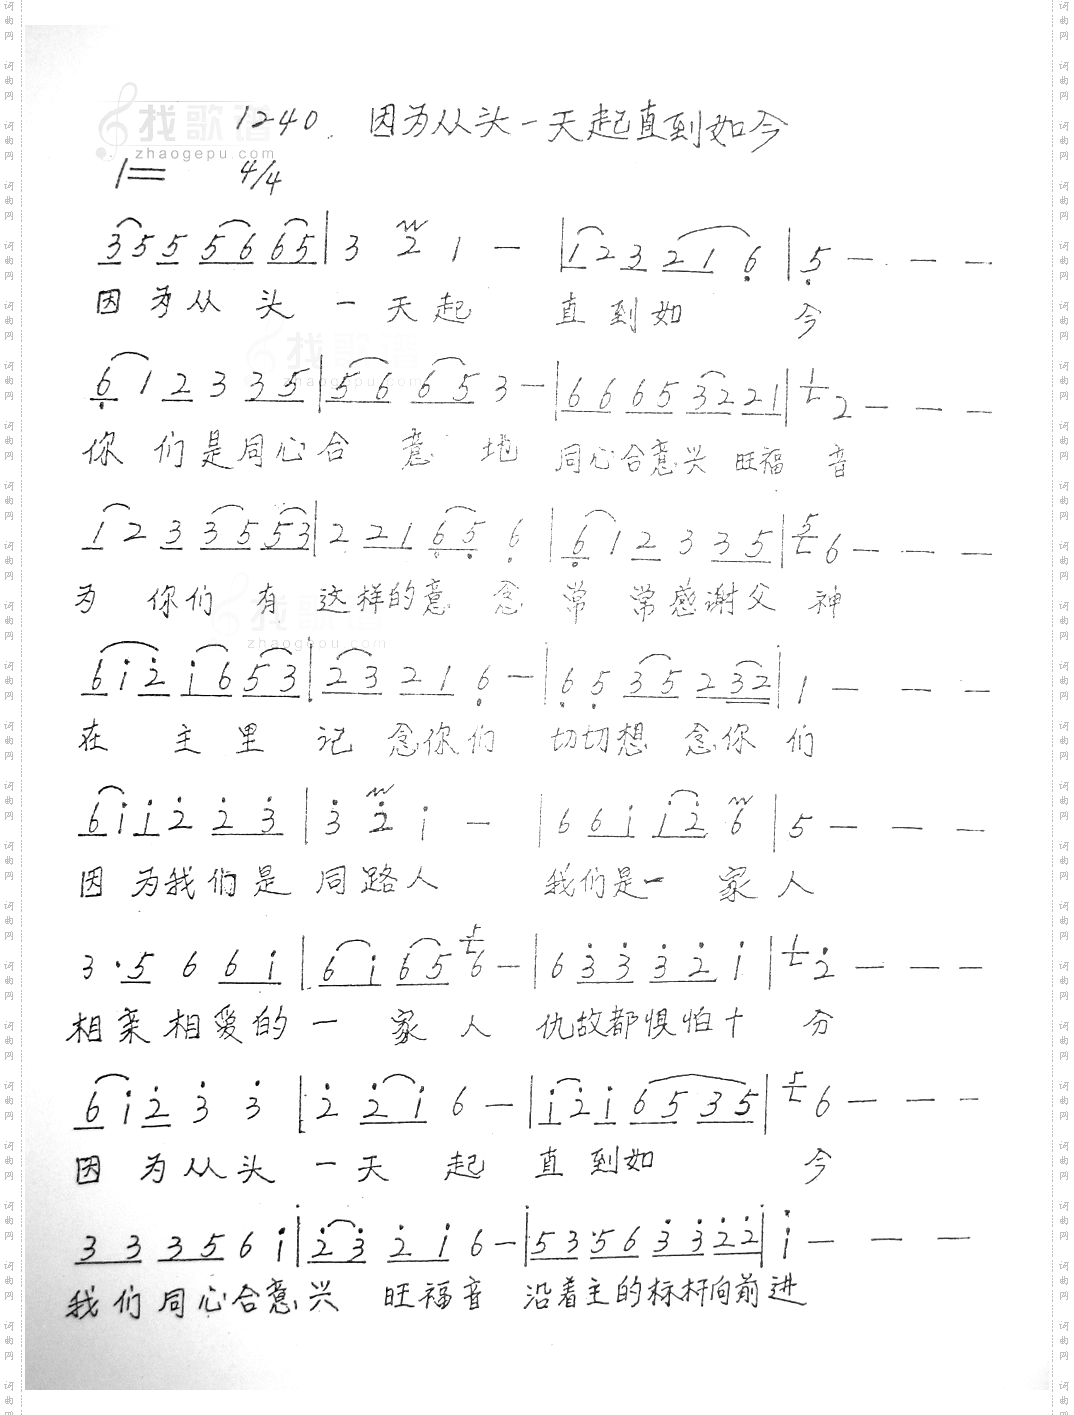 1240. 因为从头一天起直到如今
找歌谱
zhaogepu.com
1= 4/4
3 5 5 5 6 6 5 | 3 2 1 — | 1 2 3 2 1 6 | 5 — — —
因为从头一天起 直到如 今
6 1 2 3 3 5 | 5 6 6 5 3 — | 6 6 6 5 3 2 2 1 | 1 2 — — —
你们是同心合意地 同心合意兴旺福音
1 2 3 3 5 5 3 | 2 2 1 6 5 6 | 6 1 2 3 3 5 | 5 6 — — —
为你们有这样的意念 常常感谢父神
6 1 2 1 6 5 3 | 2 3 2 1 6 — | 6 5 3 5 2 3 2 | 1 — — —
在主里记念你们 切切想念你们
6 1 1 2 2 3 | 3 2 1 — | 6 6 1 1 2 6 | 5 — — —
因为我们是同路人 我们是一家人
3 · 5 6 6 1 | 6 1 6 5 5 6 — | 6 3 3 3 2 1 | 1 2 — — —
相亲相爱的一家人 仇敌都惧怕十分
6 1 2 3 3 | 2 2 1 6 — | 1 2 1 6 5 3 5 | 5 6 — — —
因为从头一天起 直到如 今
3 3 3 5 6 1 | 2 3 2 1 6 — | 5 3 5 6 3 3 2 2 | 1 — — —
我们同心合意兴旺福音 沿着主的标杆向前进